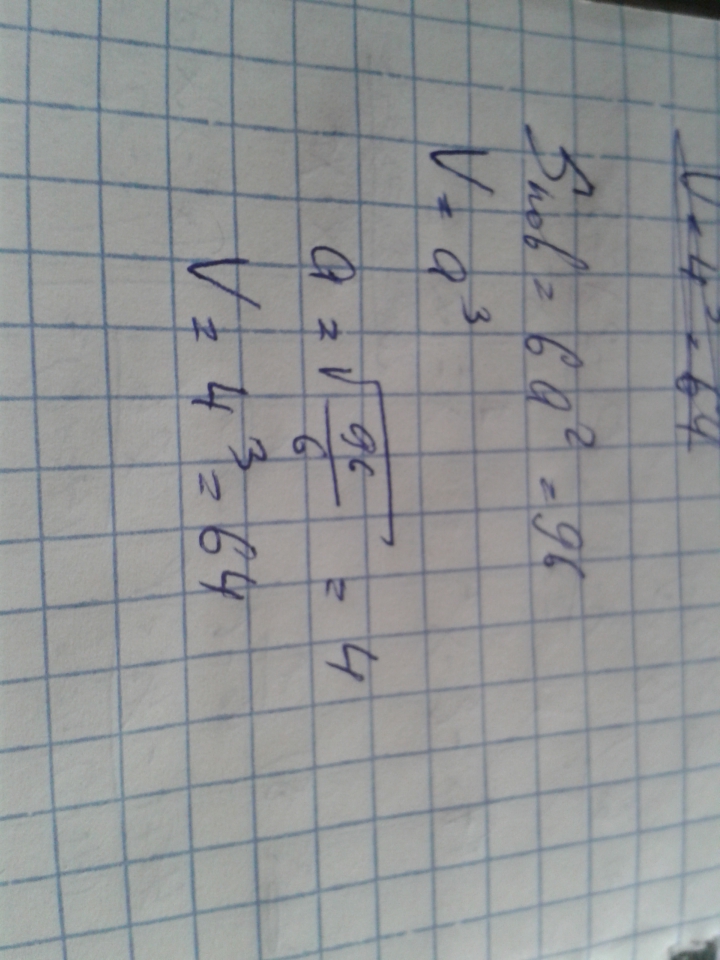 V = 4³ = 64
Sпов = 6a² = 96
V = a³
a = √(96/6) = 4
V = 4³ = 64